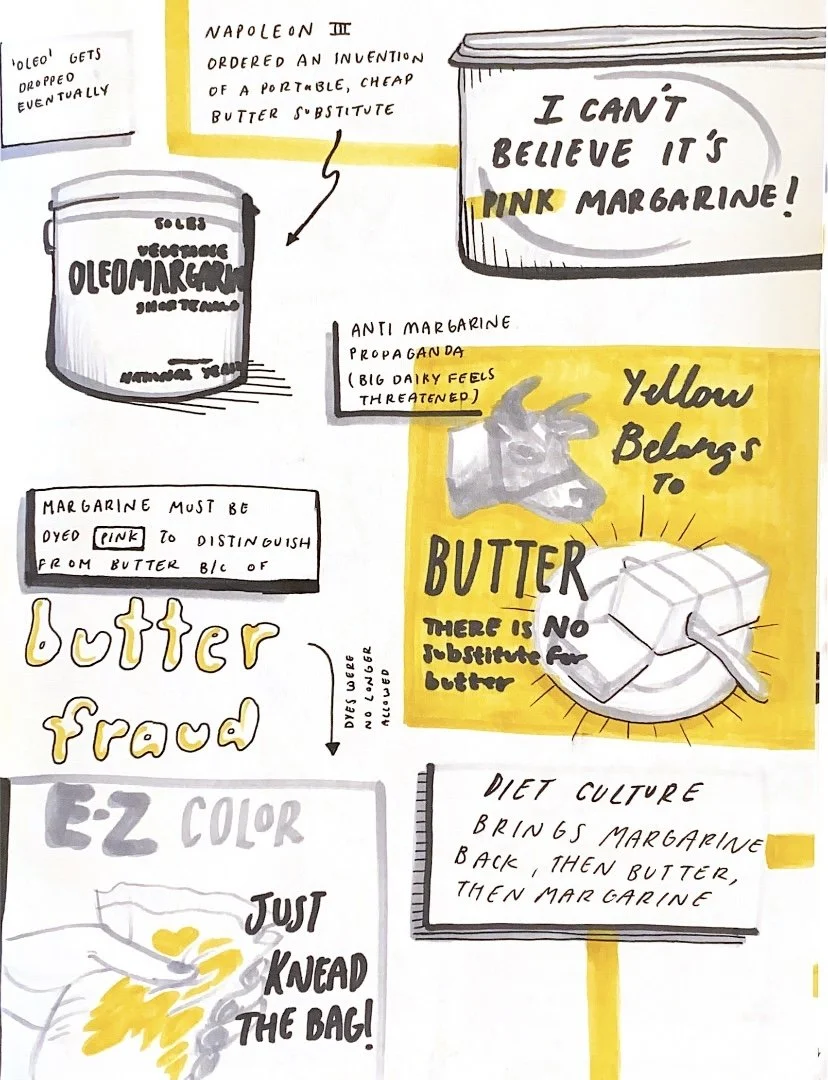 'OLEO' GETS
DROPPED
EVENTUALLY
NAPOLEON III
ORDERED AN INVENTION
OF A PORTABLE, CHEAP
BUTTER SUBSTITUTE
I CAN'T
BELIEVE IT'S
PINK MARGARINE!
VEGETABLE
OLEOMARGARIN
SHORTENING
NATIONAL YEAS
ANTI MARGARINE
PROPAGANDA
(BIG DAIRY FEELS
THREATENED)
Yellow
Belongs
TO
BUTTER
THERE IS NO
Substitute For
butter
MARGARINE MUST BE
DYED PINK TO DISTINGUISH
FROM BUTTER B/C OF
butter
fraud
DYES WERE
NO LONGER
ALLOWED
E-Z COLOR
JUST
KNEAD
THE BAG!
DIET CULTURE
BRINGS MARGARINE
BACK, THEN BUTTER,
THEN MARGARINE